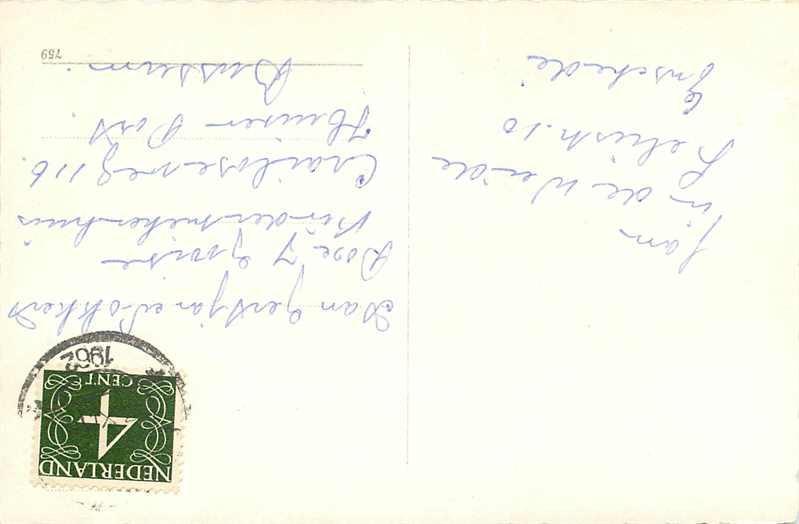 NEDERLAND
4
CENT
1962
Aan Gertjan Nokkert
Box 7 Gooise
Kinderziekenhuis
Crailoseweg 116.
Huizen Post.
Bussum.
759
Fam
in de Weide
Leliestr. 10
Enschede